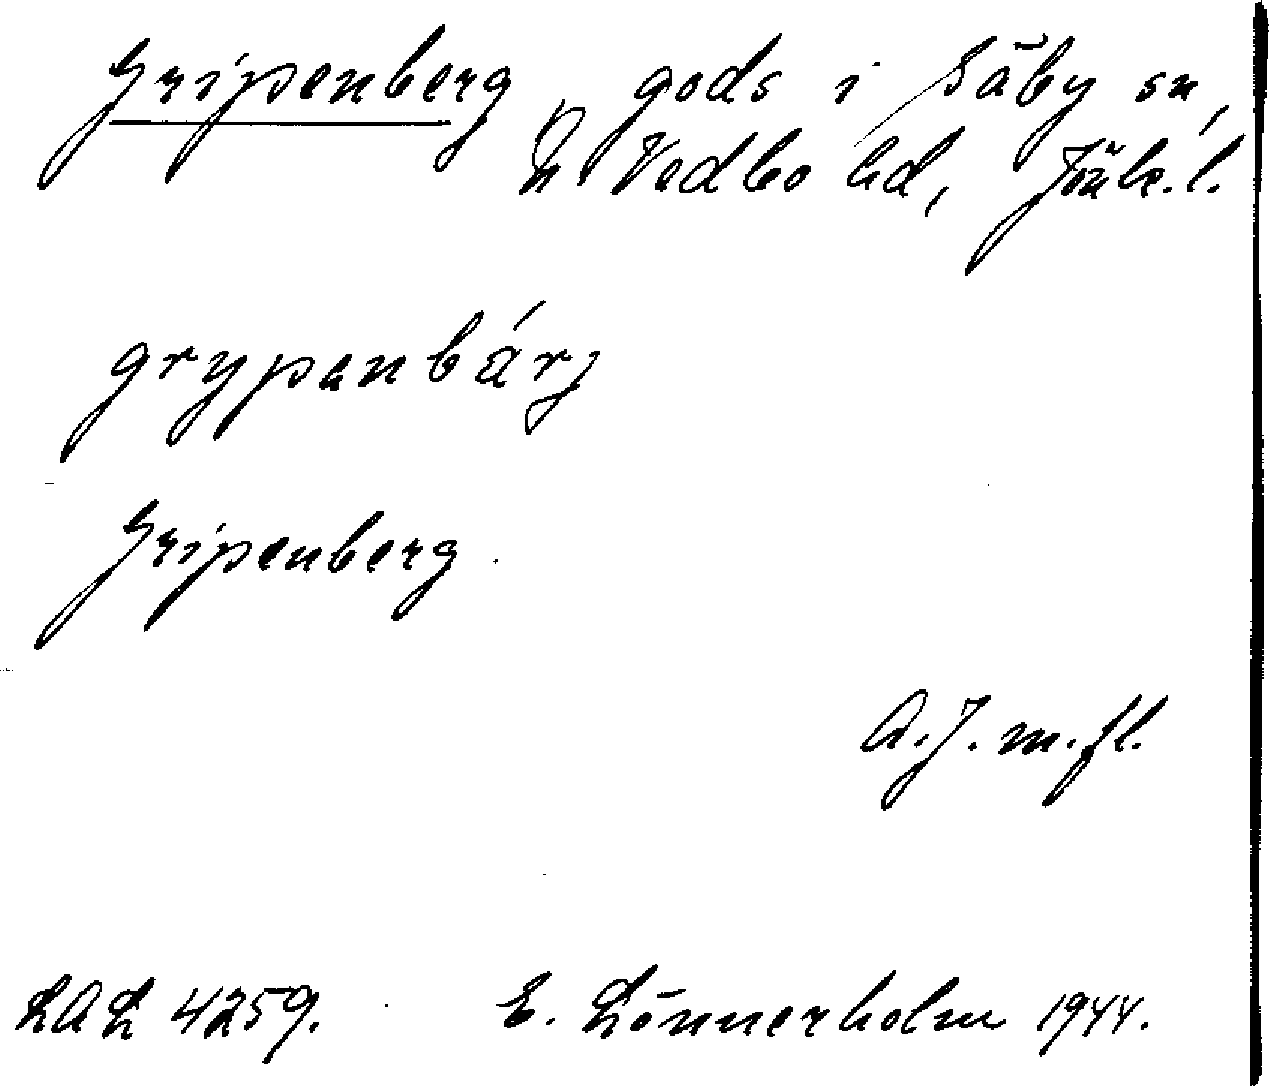 Gripenberg, gods i Säby sn,
N. Vedbo hd, Jönk. l.
grypenbárj
Gripenberg.
A.J. m.fl.
LAL 4259. E. Lönnerholm 1944.